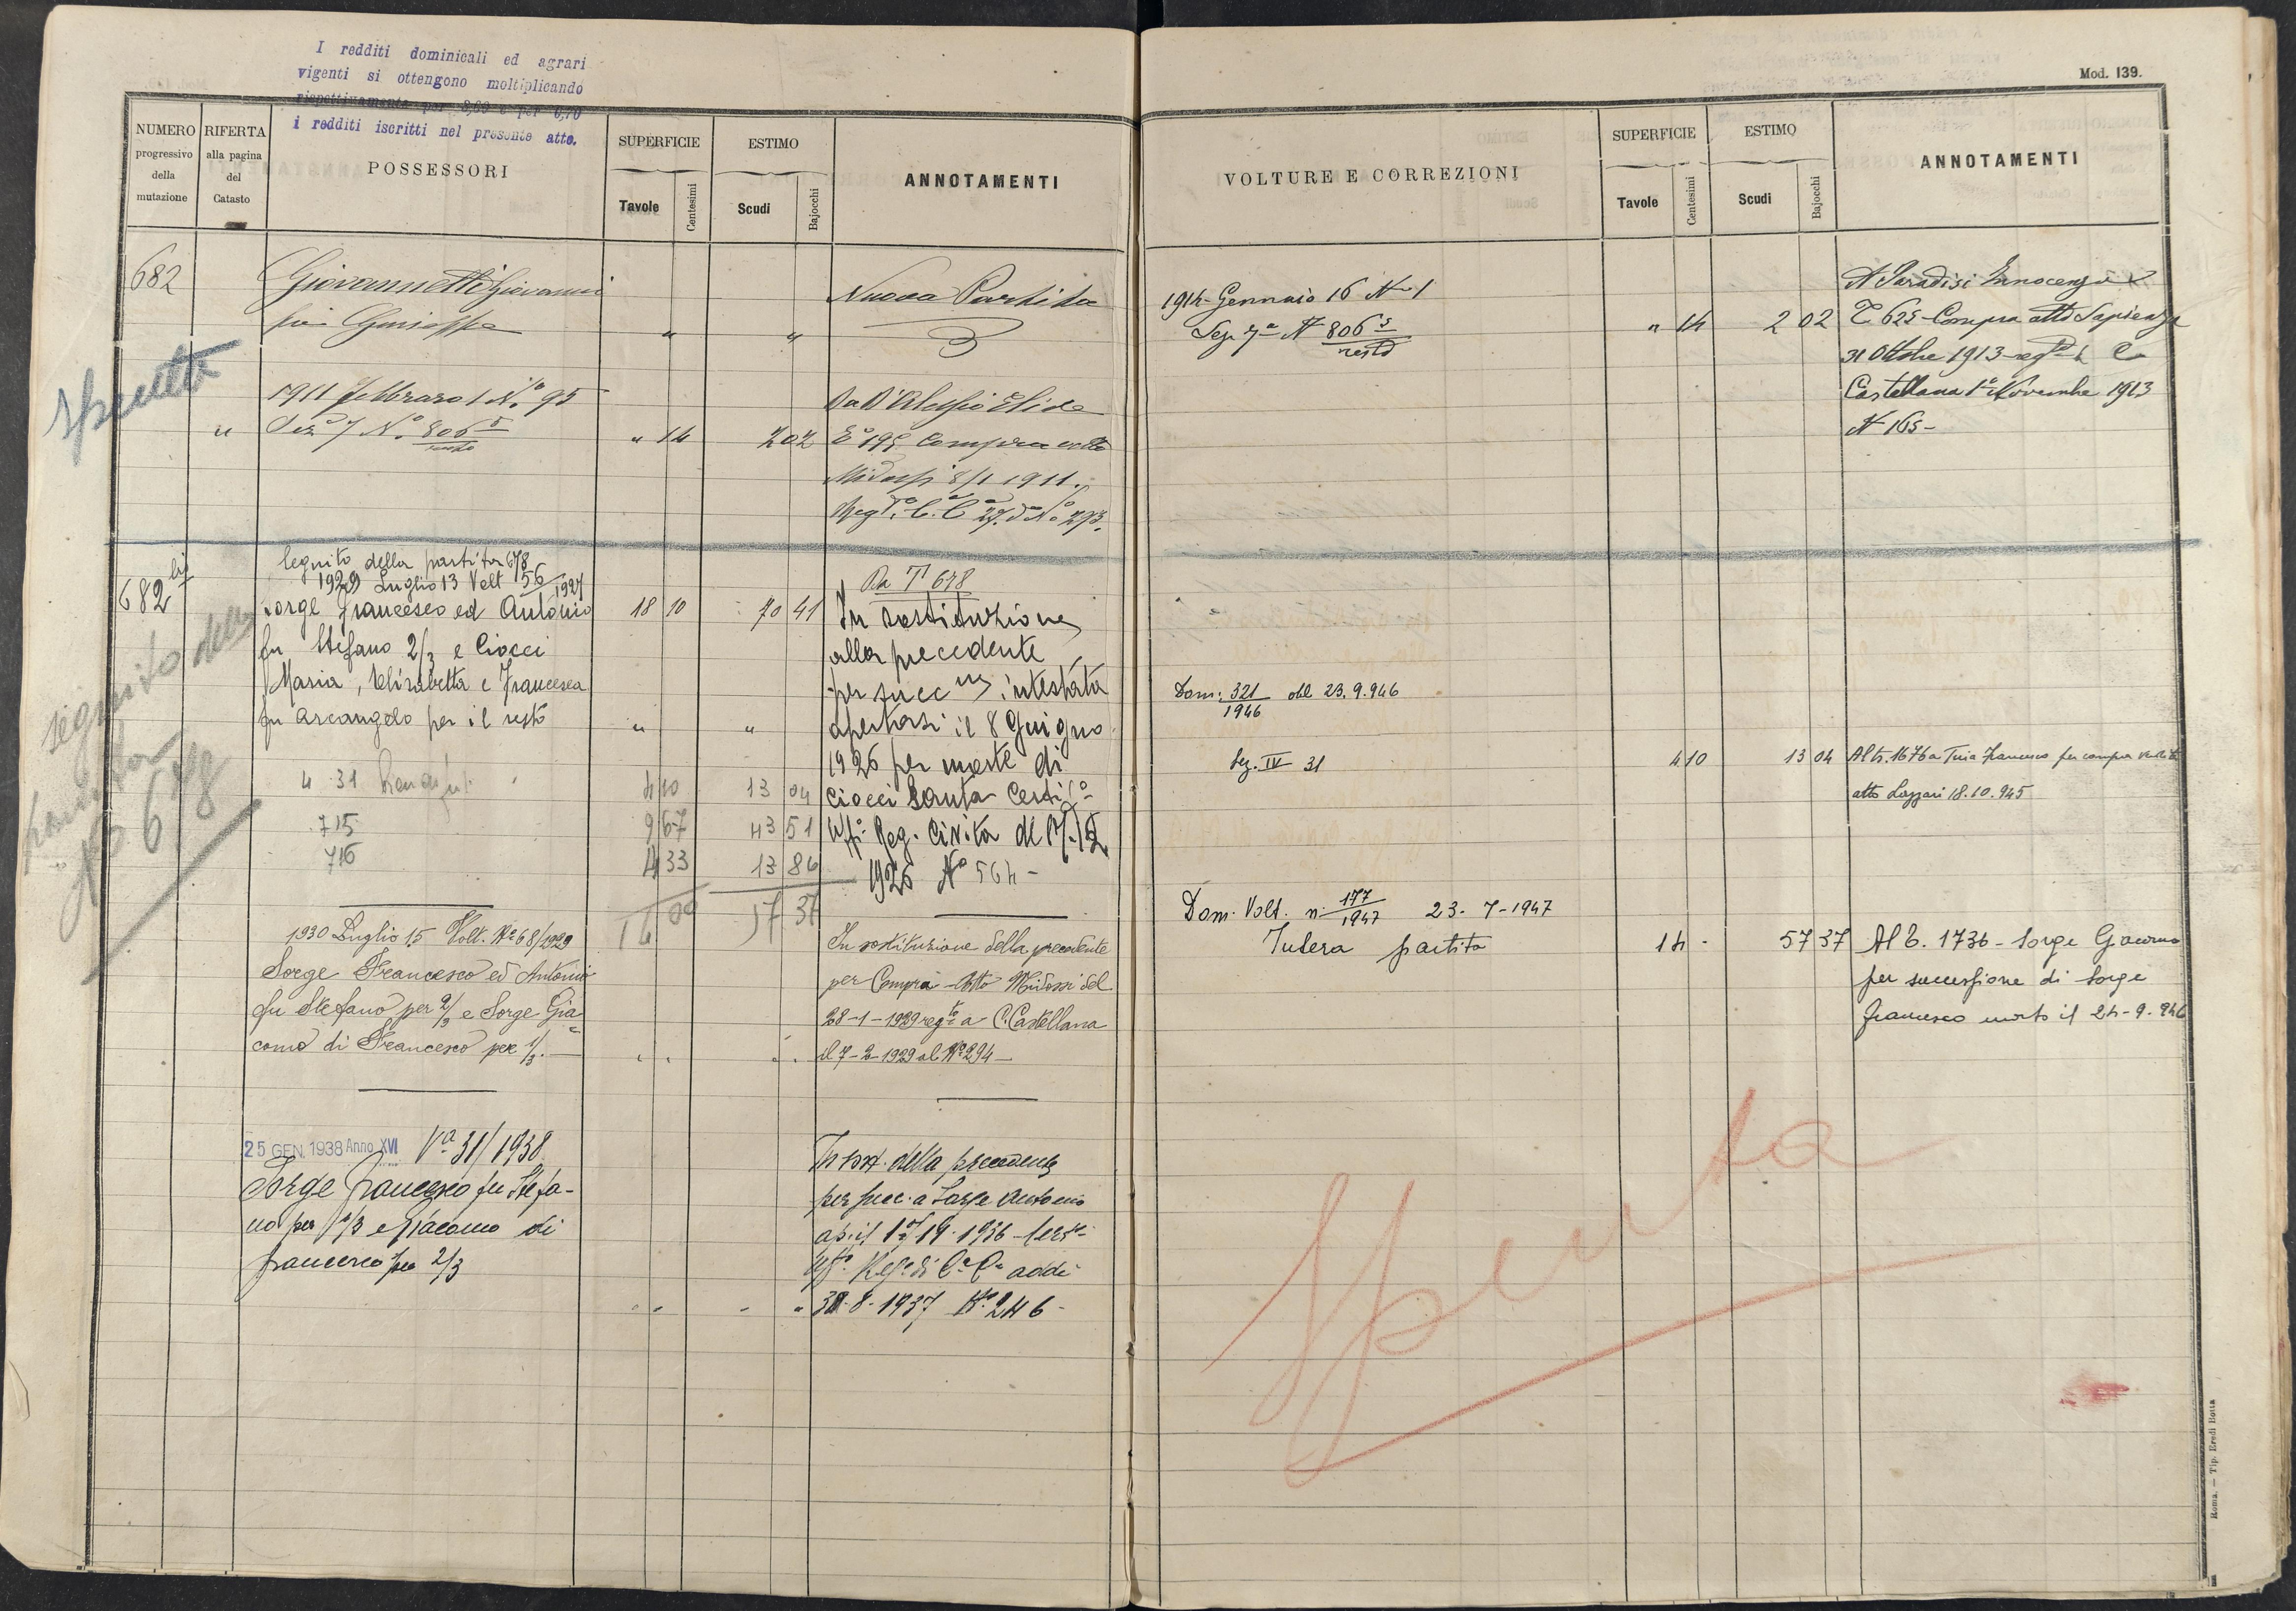 I redditi dominicali ed agrari
vigenti si ottengono moltiplicando
rispettivamente per e per 6,70
i redditi iscritti nel presente atto.
NUMERO
progressivo
della
mutazione
RIFERTA
alla pagina
del
Catasto
POSSESSORI
SUPERFICIE
Tavole
Centesimi
ESTIMO
Scudi
Bajocchi
ANNOTAMENTI
682
Giovannetti Giovanni
fu Giuseppe
" "
Nuova Partita
spenta
1911 Febbraro 1 N.° 95
" Sez° 7 N.° 806 5 " 14 2 02
resto
Da D'Alessio Elide
T° 195 Compra atto
Midossi 8/1 1911.
Reg.to C. C.a 27. d° N° 293.
682 bis
Seguito della partita 678
1929 Luglio 13 Volt 56/1927
Sorge Francesco ed Antonio 18 10 70 41
fu Stefano 2/3 e Ciocci
Maria, Elisabetta e Francesca
fu Arcangelo per il resto " "
Da T 678
In sostituzione
alla precedente
per succ.ne intestata
apertasi il 8 Giugno
1926 per morte di
Ciocci Santa Certi.to
Uff.° Reg. Civita del 17.12
1926 N° 564 -
seguito della
partita
N° 678
4 31 4 10 13 04
715 9 67 43 51
716 4 33 13 86
14 00 57 37
1930 Luglio 15 Volt. N° 68/1929
Sorge Francesco ed Antonio
fu Stefano per 2/3 e Sorge Gia
como di Francesco per 1/3. —
In sostituzione della precedente
per Compra - Atto Midossi del
28-1-1929 reg.to a C. Castellana
il 7-2-1929 al N° 294 —
25 GEN. 1938 Anno XVI V.a 31/1938
Sorge Francesco fu Stefa-
no per 1/3 e Giacomo di
Francesco per 2/3
In sost. della precedente
per succ. a Sorge Antonio
ap. il 19. 1936 -
Uff.° Reg. di C.a C.a addì
30.8.1937 N.° 246 -
Mod. 139.
VOLTURE E CORREZIONI
SUPERFICIE
Tavole
Centesimi
ESTIMO
Scudi
Bajocchi
ANNOTAMENTI
1914 - Gennaio 16 N° 1
Sez 7a N 806 5 " 14 2 02
resto
A Paradisi Innocenzo
T. 625 - Compra atto Sapienza
31 Ottobre 1913 - reg.to C
Castellana 1° Novembre 1913
N 165 -
Dom: 321/1946 del 23.9.946
Sez. IV 31 4 10 13 04 Al tr. 1676 a Francesco per compra vendita
atto Lazzari 18.10.945
Dom. Volt. n. 177/1947 23-7-1947
Intera partita 14 - 57 37 Al T. 1736 - Sorge Giacomo
per successione di Sorge
Francesco morto il 24-9-946
Spenta
Roma. — Tip. Eredi Botta